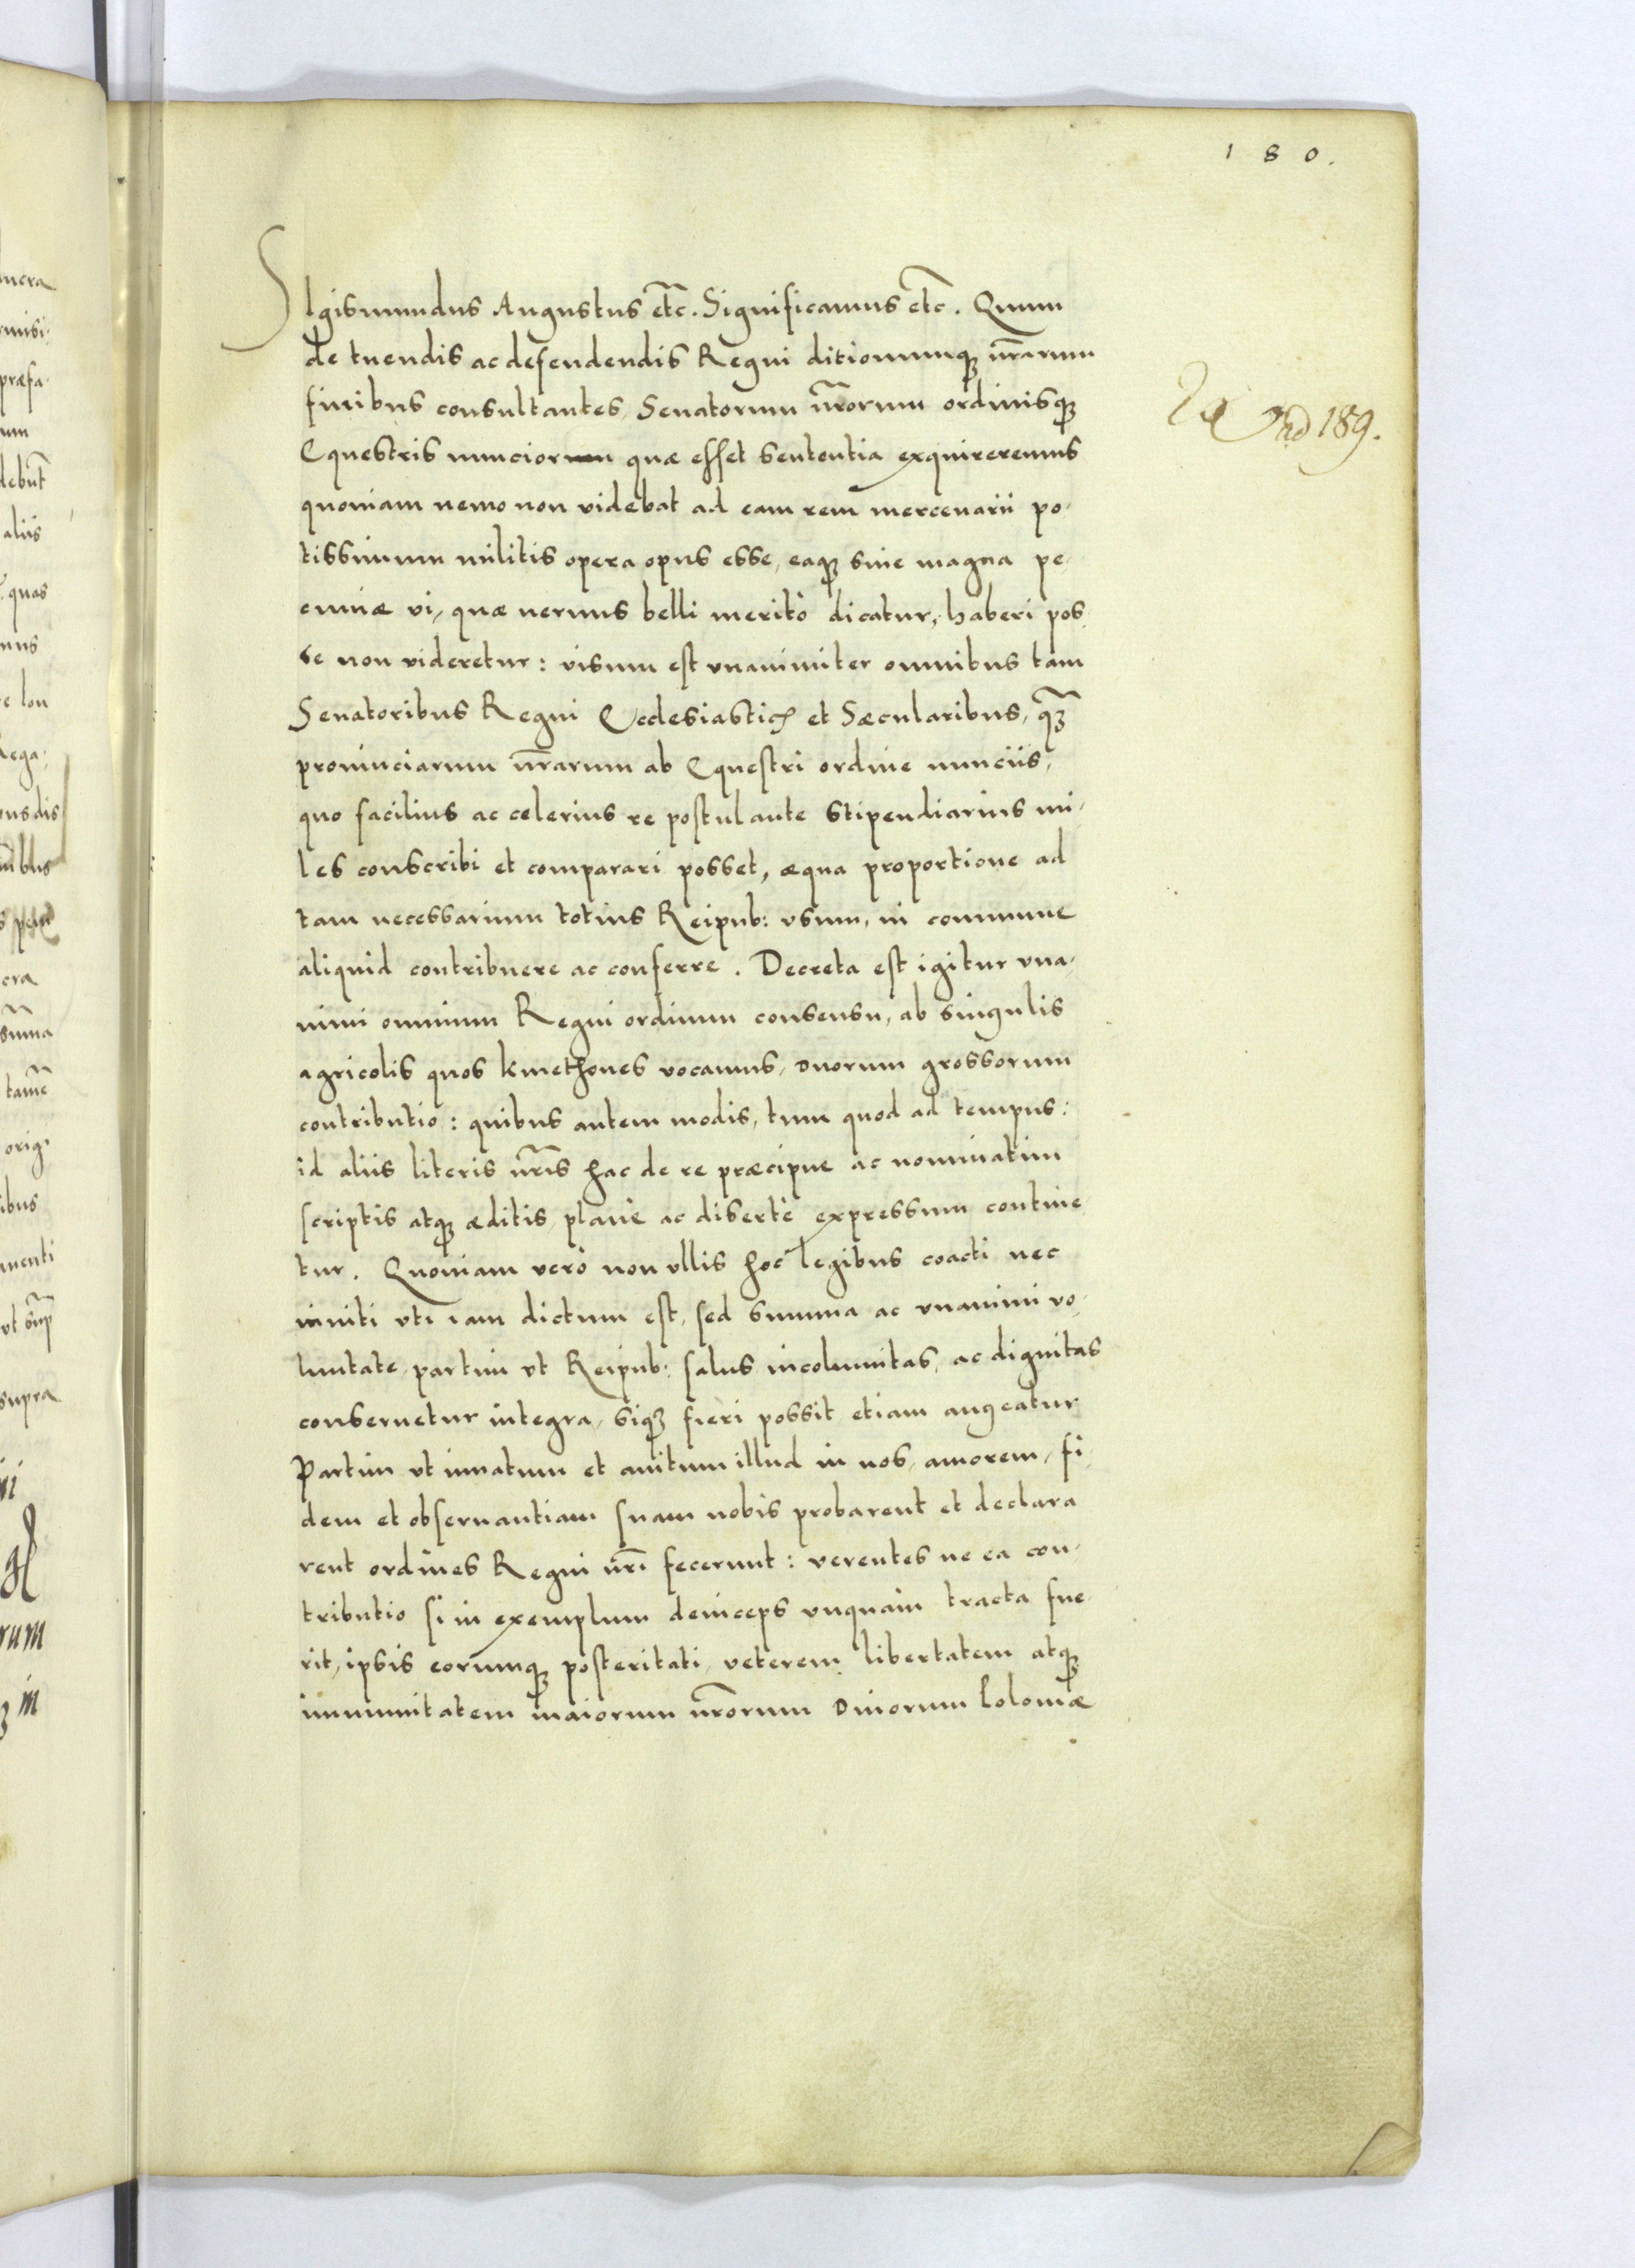 180.
SIgismundus Augustus etc̃. Significamus etc̃. Quum
de tuendis ac defendendis Regni ditionumq; nr̃arum
finibus consultantes, Senatorum nr̃orum ordinisq;
Equestris nunciorum quæ esset sententia exquireremus
quoniam nemo non videbat ad eam rem mercenarii po-
tissimum militis opera opus esse, eaq; sine magna pe-
cuniæ vi, quæ neruus belli merito dicatur, haberi pos
se non videretur: visum est vnanimiter omnibus tam
Senatoribus Regni Ecclesiasticis et Sæcularibus, q̃;
prouinciarum nr̃arum ab Equestri ordine nunciis,
quo facilius ac celerius re postulante stipendiarius mi-
les conscribi et comparari posset, æqua proportione ad
tam necessarium totius Reipub: vsum, in commune
aliquid contribuere ac conferre. Decreta est igitur vna-
nimi omnium Regni ordinum consensu, ab singulis
agricolis quos kmethones vocamus, duorum grossorum
contributio: quibus autem modis, tum quod ad tempus:
id aliis literis nr̃is hac de re præcipue ac nominatim
scriptis atq; æditis, planè ac disertè expressum contine
tur. Quoniam verò non vllis hoc legibus coacti nec
inuiti vti iam dictum est, sed summa ac vnanimi vo-
luntate, partim vt Reipub: salus incolumitas, ac dignitas
conseruetur integra, siq; fieri possit etiam augeatur
Partim vt innatum et auitum illud in nos, amorem, fi-
dem et obseruantiam suam nobis probarent et declara
rent ordines Regni nr̃i fecerunt: verentes ne ea con-
tributio si in exemplum deinceps vnquam tracta fue
rit, ipsis eorumq; posteritati, veterem libertatem atq;
immunitatem maiorum nr̃orum Diuorum Loloniæ
ad 189.